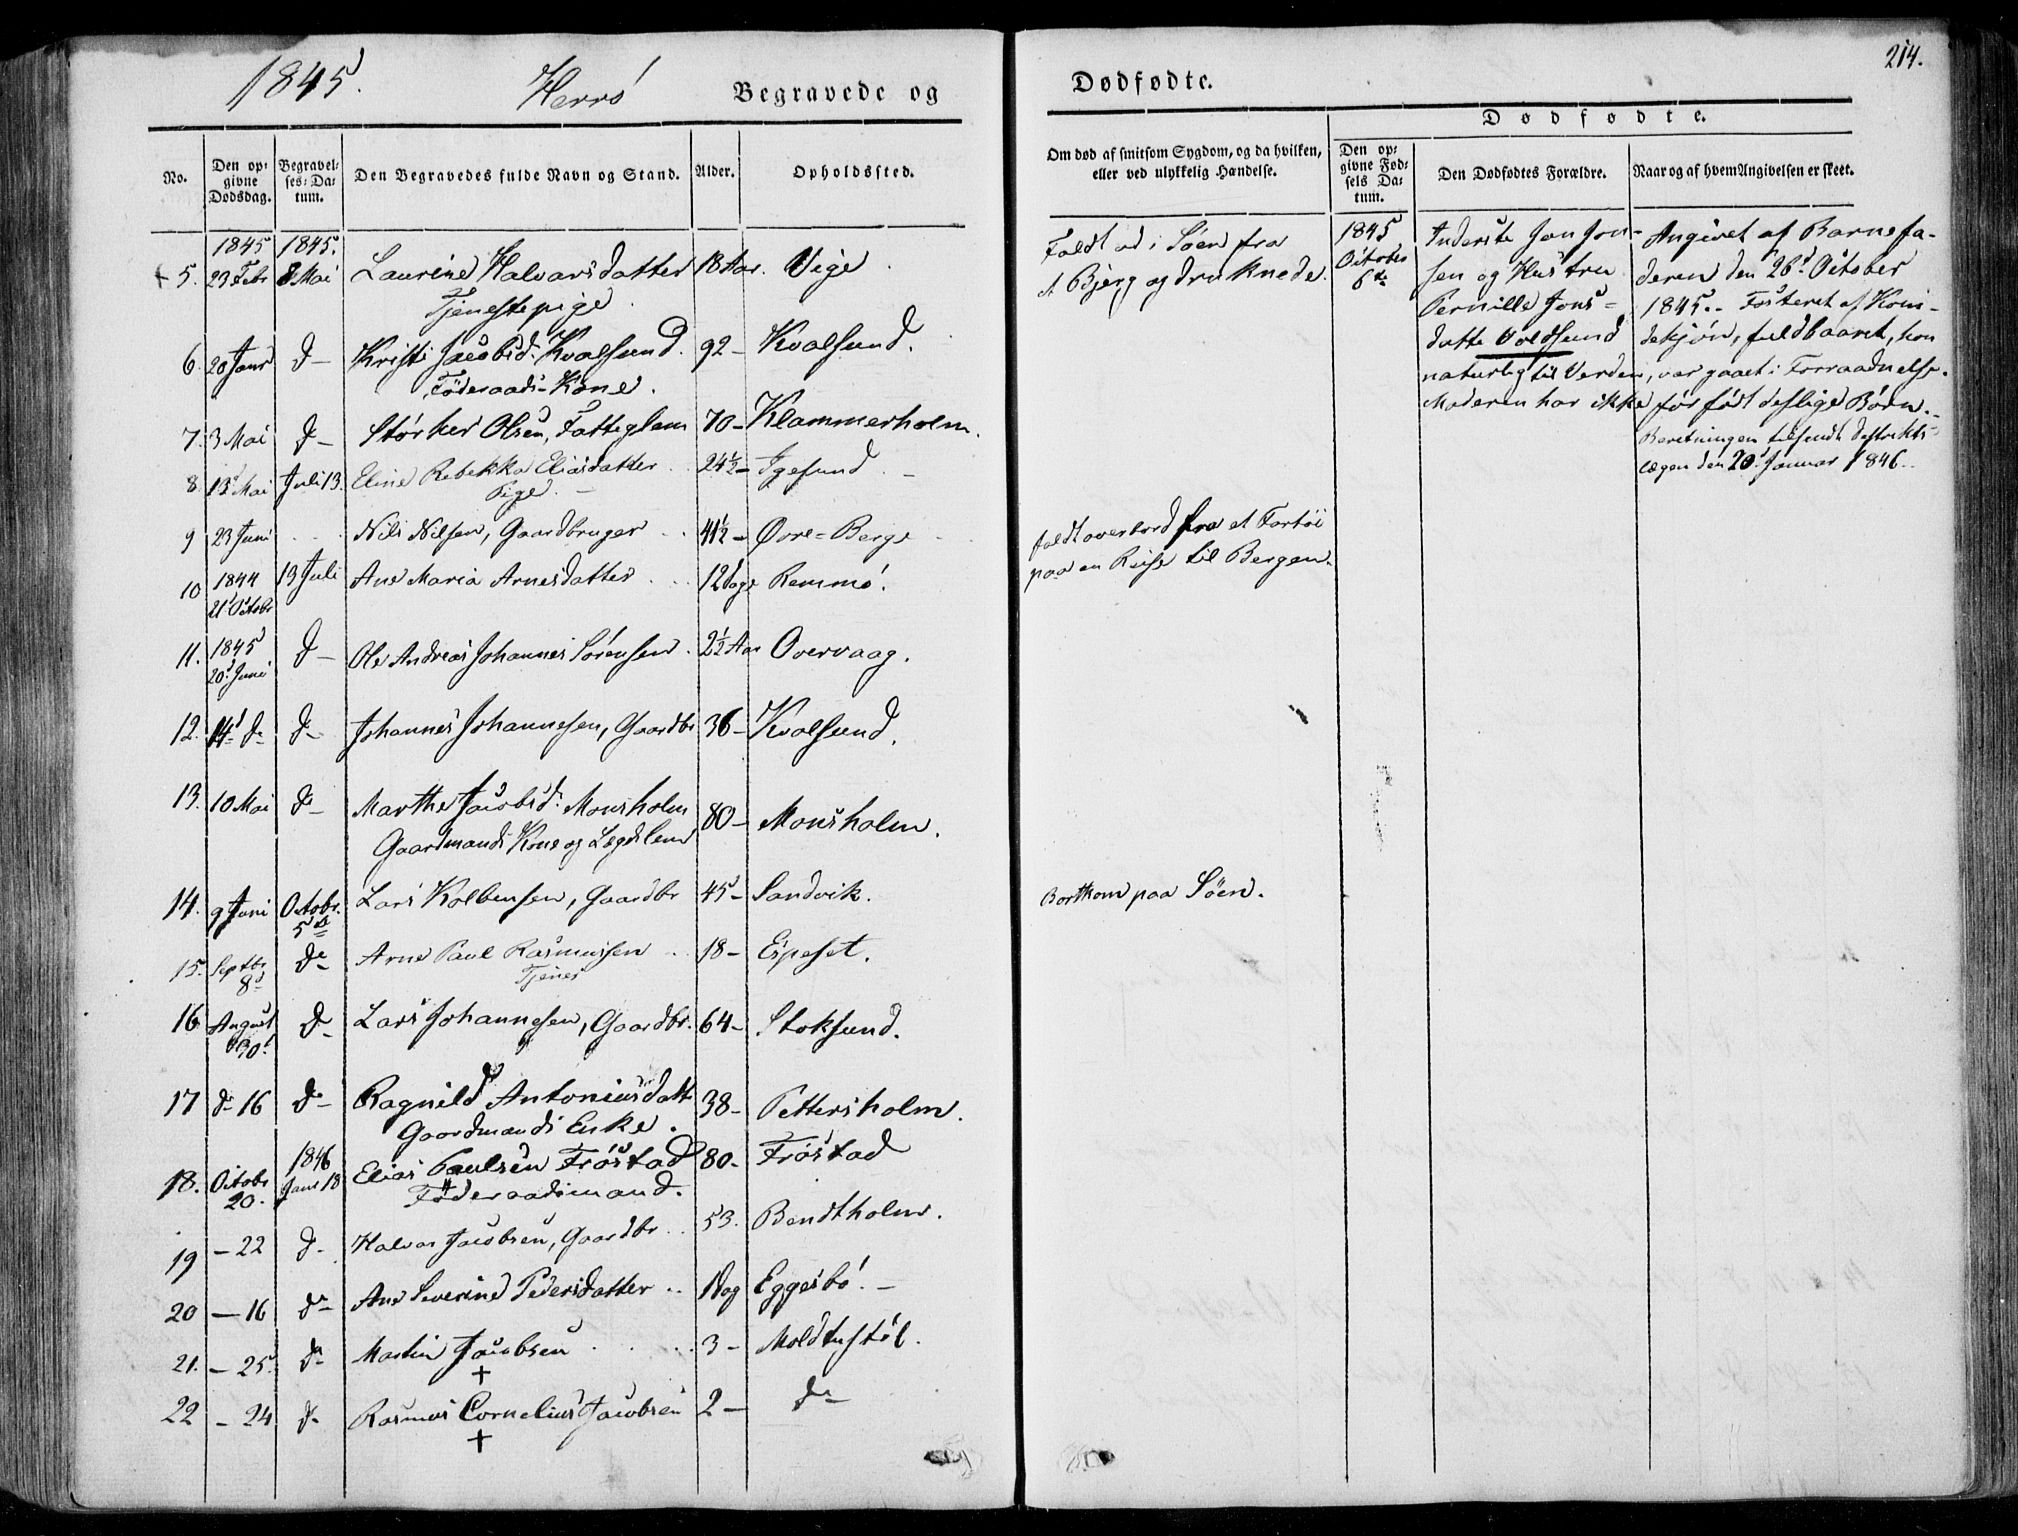 1845. Herrö Begravede og Dødfødte. 214.
No. Den opgivne Dødsdag. Begravelses-Datum. Den Begravedes fulde Navn og Stand. Alder. Opholdssted. Om død af smitsom Sygdom, og da hvilken, eller ved ulykkelig Hændelse.
Dødfødte.
Den opgivne Fødsels Datum. Den Dødfødtes Forældre. Naar og af hvem Angivelsen er skeet.
1845 1845.
5. 23 Febr 8 Mai Laurine Halvarsdatter 18 Aar. Vige
Tjenestepige
Faldt ud i Söen fra
et Bjerg og druknede.
6. 20 Janr d– Kristi Jacobsd. Kvalsund. 92 – Kvalsund.
Föderaads-Kone.
7. 3 Mai d– Störker Olsen, Fattiglem 70 – Klammerholm.
8 13 Mai Juli 13. Eline Rebekka Eliasdatter 24½ – Igesund –
Pige –
9 23 Juni Nils Nilsen, Gaardbruger 41½ – Øvre-Berge
faldt overbord fra et Fartöi
paa en Reise til Bergen.
10 1844 13 Juli Ane Maria Arnesdatter 12 Dage Remmö.
21 Octobr
11. 1845 d– Ole Andreas Johannes Sörensen 2½ Aar Overvaag.
20 Juni
12. 14 d– d– Johannes Johannesen, Gaardbr 36 – Kvalsund.
13. 10 Mai d– Marthe Jacobsd. Monsholm 80 – Monsholm.
Gaardmands Kone og Lægdslem
14. 9 Juni Octobr. Lars Kolbensen, Gaardbr 45 – Sandvik. Bortkom paa Söen.
5te
15. Septbr d– Arne Paul Rasmussen 18 – Espeset.
8 Tjener
16 August d– Lars Johannesen, Gaardbr. 64 – Stoksund.
30
17 d– 16 d– Ragnild Antoniusdatt 38 – Pettersholm.
Gaardmands Enke.
1846
18. Octobr Janr 18 Elias Paulsen Fröstad 80 – Fröstad
20. Föderaadsmand.
19 – 22 d– Halvar Jacobsen, Gaardbr 53. Bendtholm.
20 – 16 d– Ane Severine Pedersdatter 1 Dag Eggesbö. –
21. – 25. d– Martin Jacobsen 3 – Moldtustöl.
+
22 – 24 d– Rasmus Cornelius Jacobsen 2 – d–
+
1845
October
6te
Anderste Jon Jon-
sen og Hustru
Pernille Jons-
datte Voldsund
Angivet af Barnefa-
deren den 26 October
1845. – Fosteret af Kvin-
dekjön, fuldbaaret, kom
naturlig til Verden, var gaaet i Forraadnelse.
Moderen har ikke för födt deslige Börn. –
Beretningen tilsendt Distrikts-
lægen den 20 Januar 1846.